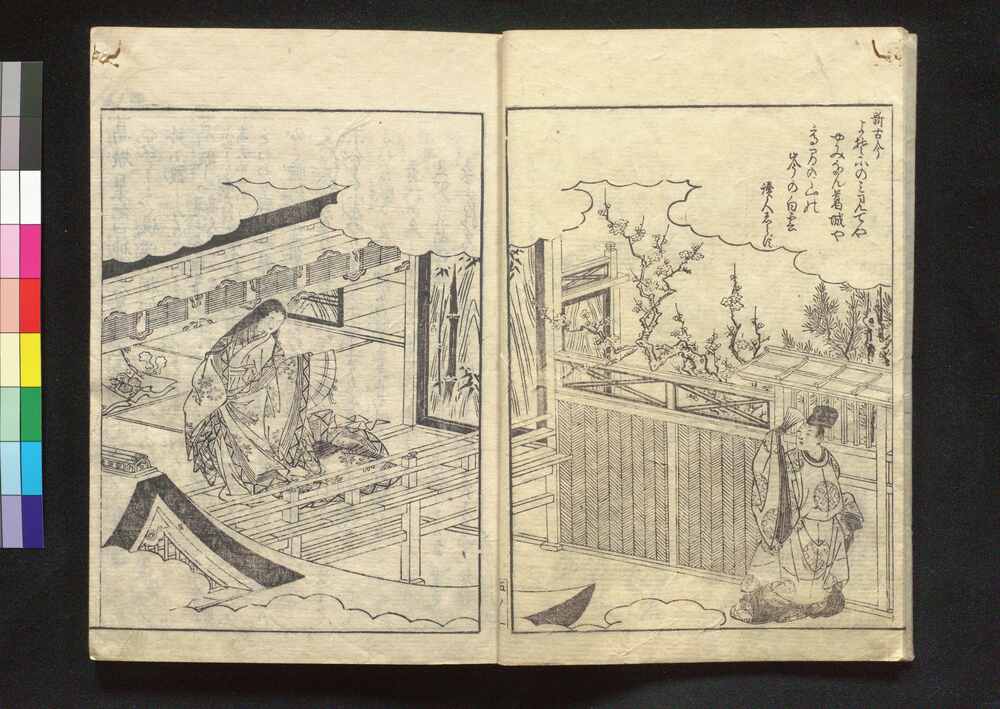 新古今
よそにのミ見てや
やみなん葛城や
高間の山の
岑の白雲
讀人しらす